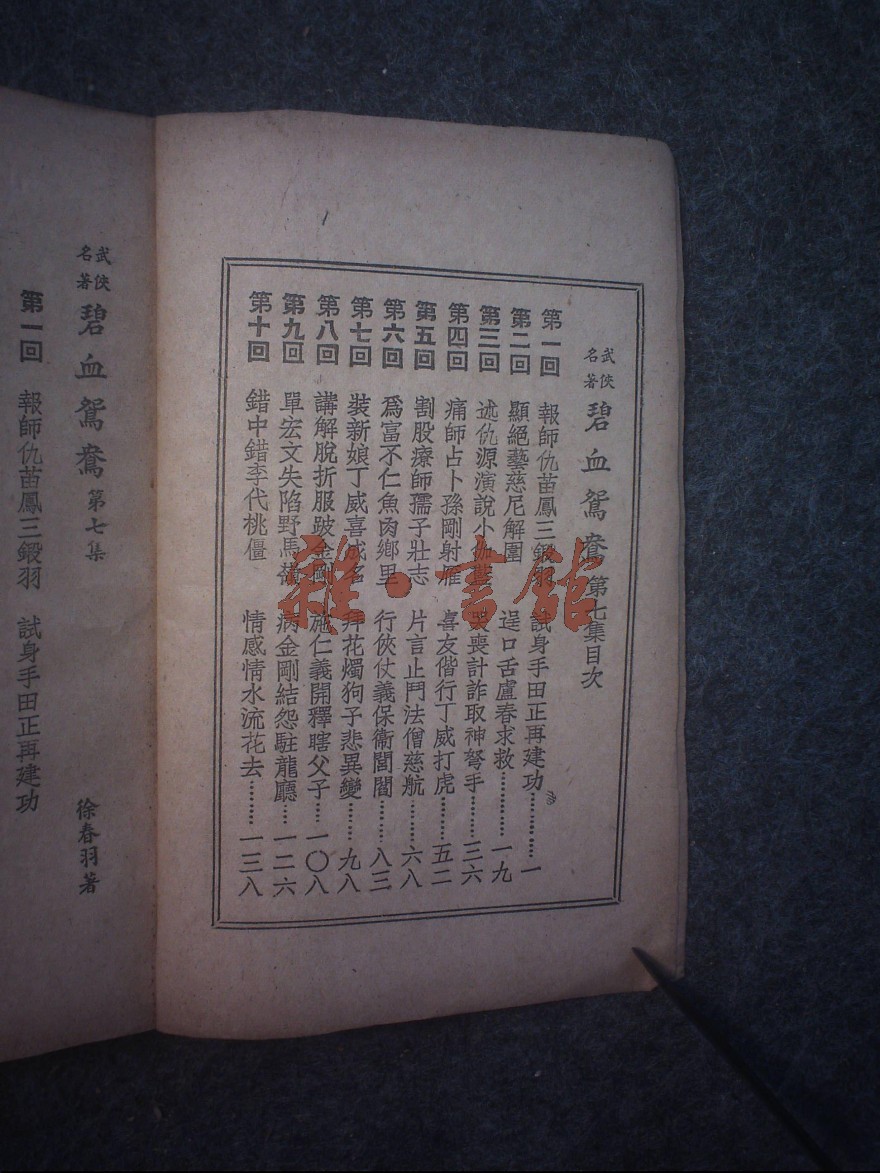 武俠名著 碧血鴛鴦 第七集目次
第一回 報師仇苗鳳三鎩羽 試身手田正再建功…………一
第二回 顯絕藝慈尼解圍 逞口舌盧春求救…………一九
第三回 述仇源演說小伽藍 喪計詐取神弩手………三六
第四回 痛師占卜孫剛射雁 喜友偕行丁威打虎………五二
第五回 割股療師孺子壯志 片言止鬥法僧慈航………六八
第六回 爲富不仁魚肉鄉里 行俠仗義保衛閭閻………八三
第七回 裝新娘丁威喜成名 拜花燭狗子悲異變………九八
第八回 講解脫折服跛金剛 施仁義開釋瞎父子……一〇八
第九回 單宏文失陷野馬嶺 病金剛結怨駐龍廳……一二六
第十回 錯中錯李代桃僵 情感情水流花去………一三八
武俠名著 碧血鴛鴦 第七集
徐春羽著
第一回 報師仇苗鳳三鎩羽 試身手田正再建功
雜·書館